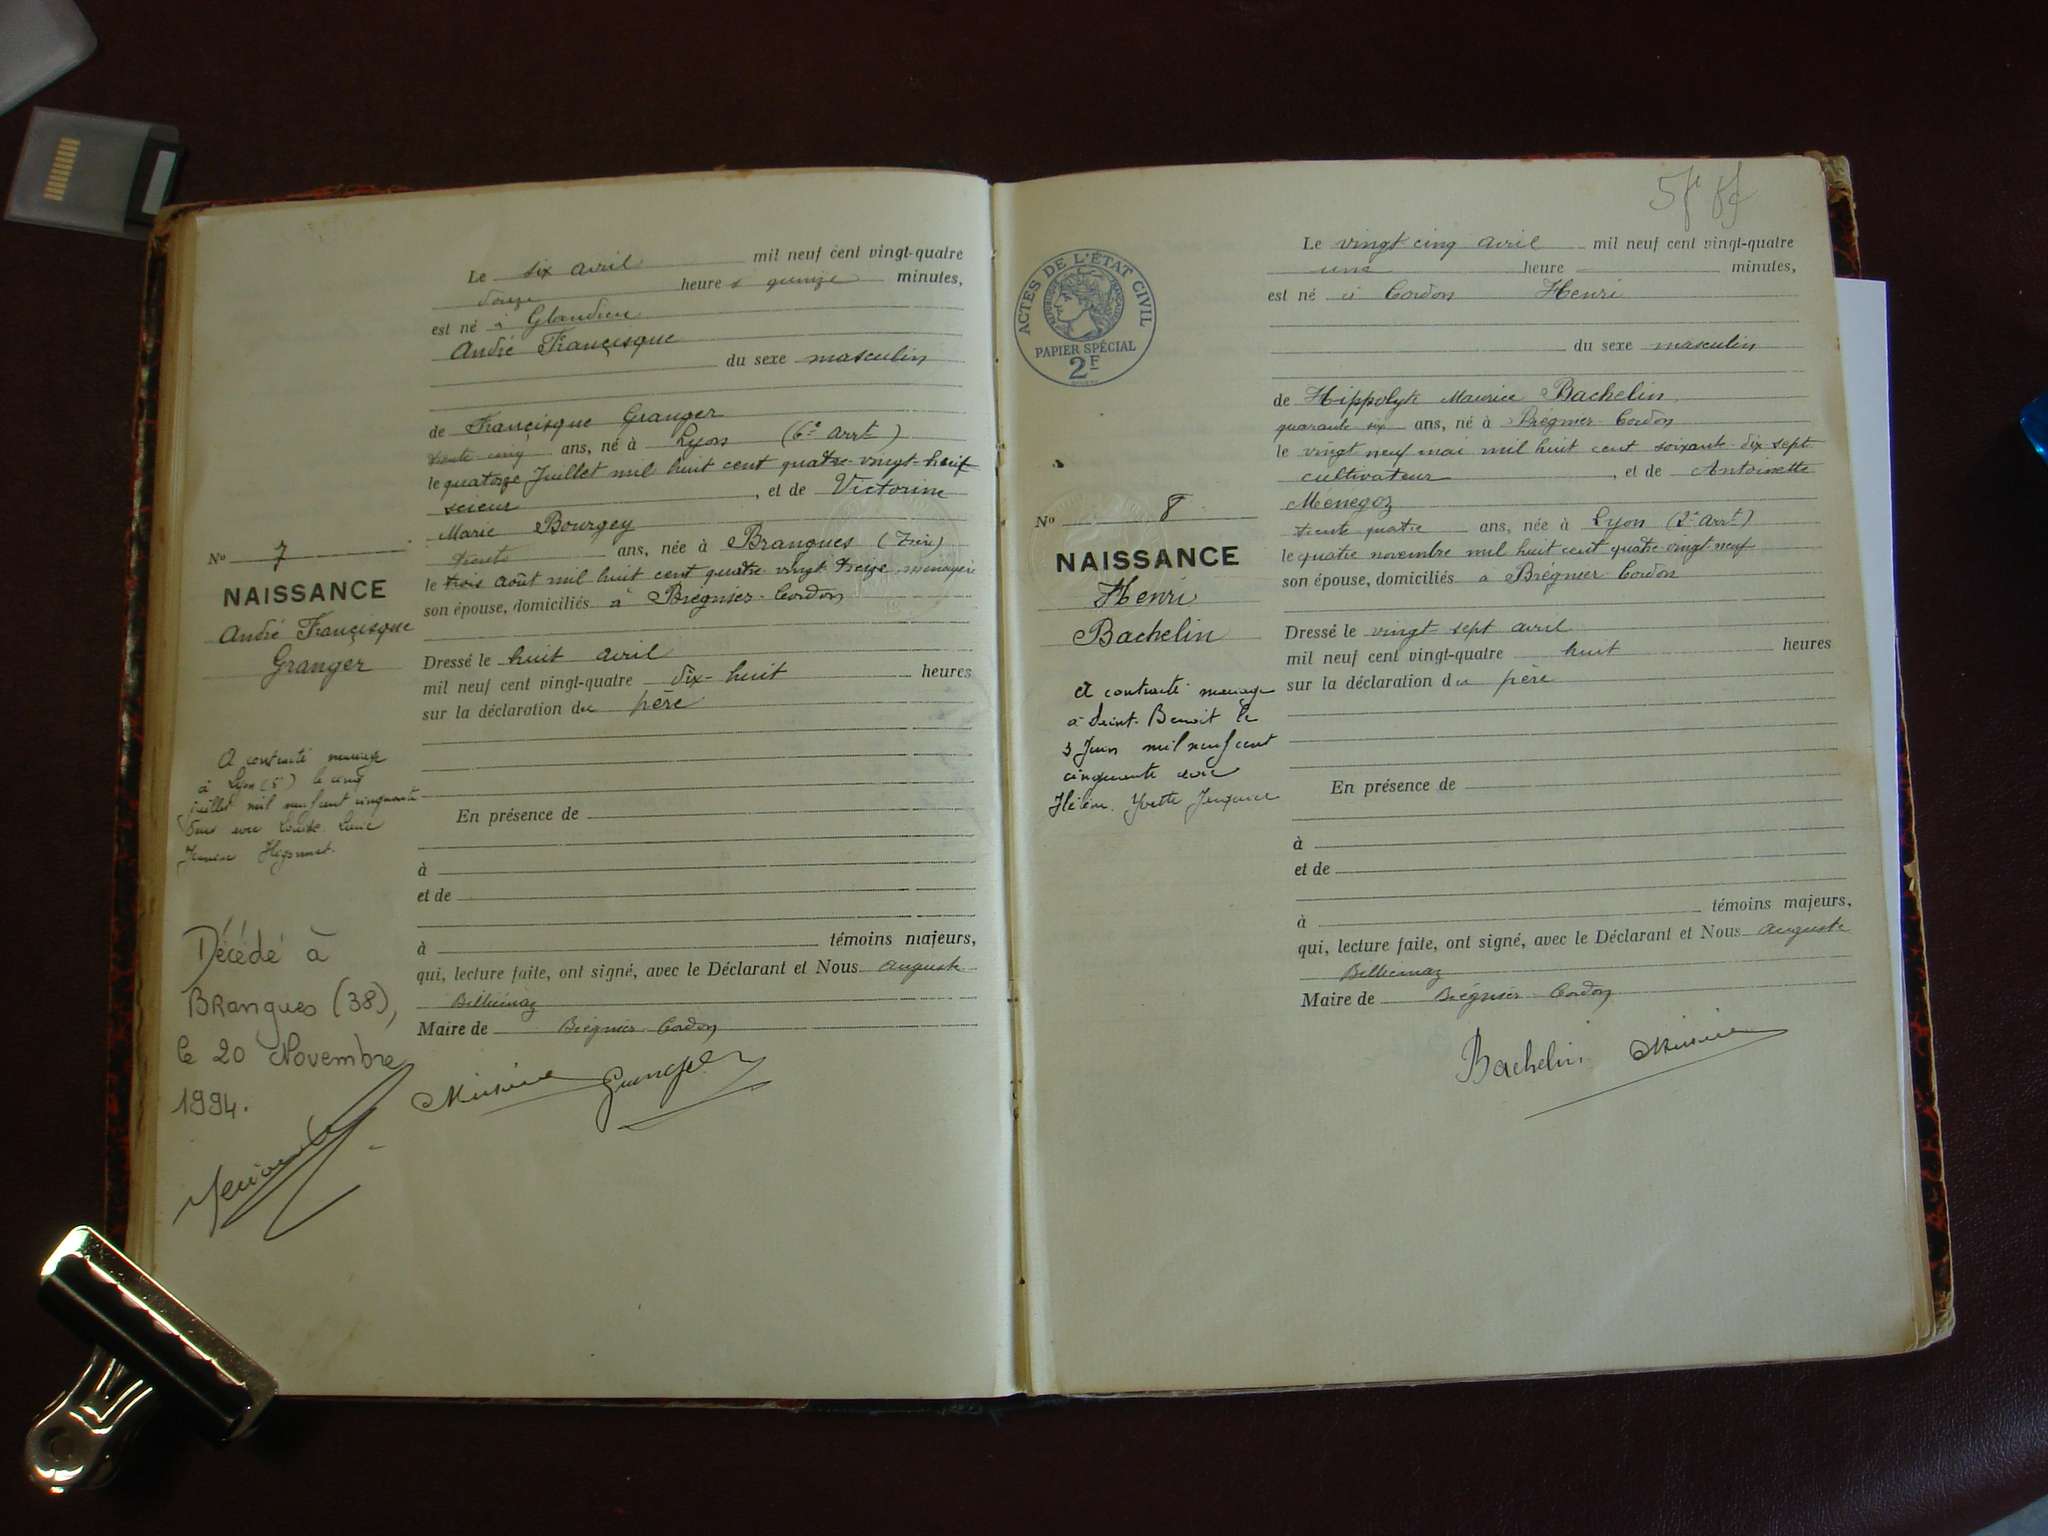 Le six avril mil neuf cent vingt-quatre
douze heures quinze minutes,
est né à Glandieu
André Françisque
du sexe masculin
de Françisque Granger
trente cinq ans, né à Lyon (6e Arrt)
le quatorze Juillet mil huit cent quatre-vingt-huit
scieur, et de Victorine
Marie Bourgey
trente ans, née à Brangues (Isère)
le trois Août mil huit cent quatre vingt treize ménagère
son épouse, domiciliés à Brégnier-Cordon
Dressé le huit avril
mil neuf cent vingt-quatre dix-huit heures
sur la déclaration du père
En présence de
à
et de
à témoins majeurs,
qui, lecture faite, ont signé, avec le Déclarant et Nous Auguste
Billiémaz
Maire de Brégnier-Cordon
Granger
No 7
NAISSANCE
André Françisque
Granger
A contracté mariage
à Lyon (5e) le cinq
juillet mil neuf cent cinquante
avec Louise
Décédé à
Brangues (38),
le 20 Novembre
1994.
ACTES DE L'ÉTAT CIVIL
RÉPUBLIQUE FRANÇAISE
PAPIER SPÉCIAL
2F
No 8
NAISSANCE
Henri
Bachelin
A contracté mariage
à Saint-Benoit le
3 Juin mil neuf cent
cinquante avec
Hélène Yvette
Le vingt-cinq avril mil neuf cent vingt-quatre
une heure minutes,
est né à Cordon Henri
du sexe masculin
de Hippolyte Maurice Bachelin
quarante six ans, né à Brégnier-Cordon
le vingt neuf mai mil huit cent soixante-dix-sept
cultivateur, et de Antoinette
Menegoz
trente quatre ans, née à Lyon (2e Arrt)
le quatre novembre mil huit cent quatre-vingt-neuf
son épouse, domiciliés à Brégnier-Cordon
Dressé le vingt-sept avril
mil neuf cent vingt-quatre huit heures
sur la déclaration du père
En présence de
à
et de
à témoins majeurs,
qui, lecture faite, ont signé, avec le Déclarant et Nous Auguste
Billiémaz
Maire de Brégnier-Cordon
Bachelin